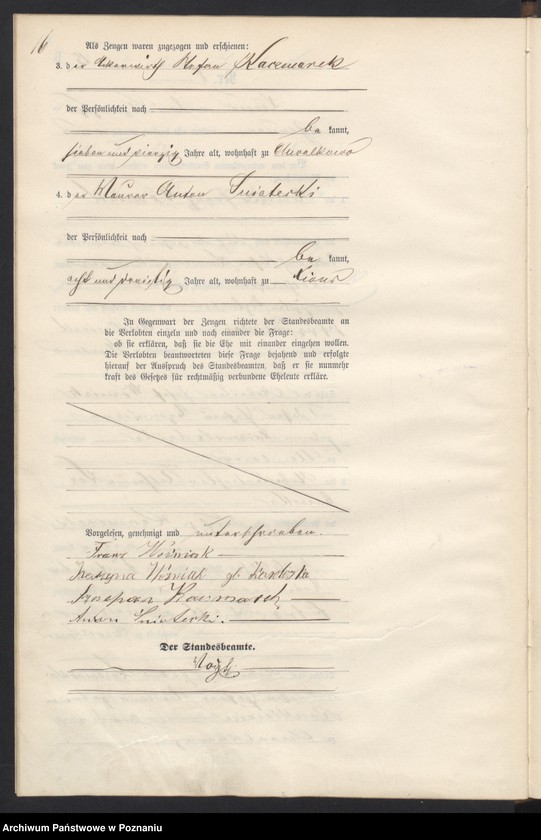 16
Als Zeugen waren zugezogen und erschienen:
3. der Ackerwirth Stefan Kaczmarek
der Persönlichkeit nach
be kannt,
sieben und vierzig Jahre alt, wohnhaft zu Chwalkowo
4. der Maurer Anton Sniaterki
der Persönlichkeit nach
be kannt,
acht und dreißig Jahre alt, wohnhaft zu Xions
In Gegenwart der Zeugen richtete der Standesbeamte an
die Verlobten einzeln und nach einander die Frage:
ob sie erklären, daß sie die Ehe mit einander eingehen wollen.
Die Verlobten beantworteten diese Frage bejahend und erfolgte
hierauf der Ausspruch des Standesbeamten, daß er sie nunmehr
kraft des Gesetzes für rechtmäßig verbundene Eheleute erkläre.
Vorgelesen, genehmigt und unterschrieben.
Franz Woźniak
Woźniak
Anton Sniaterki.
Der Standesbeamte.
Archiwum Państwowe w Poznaniu